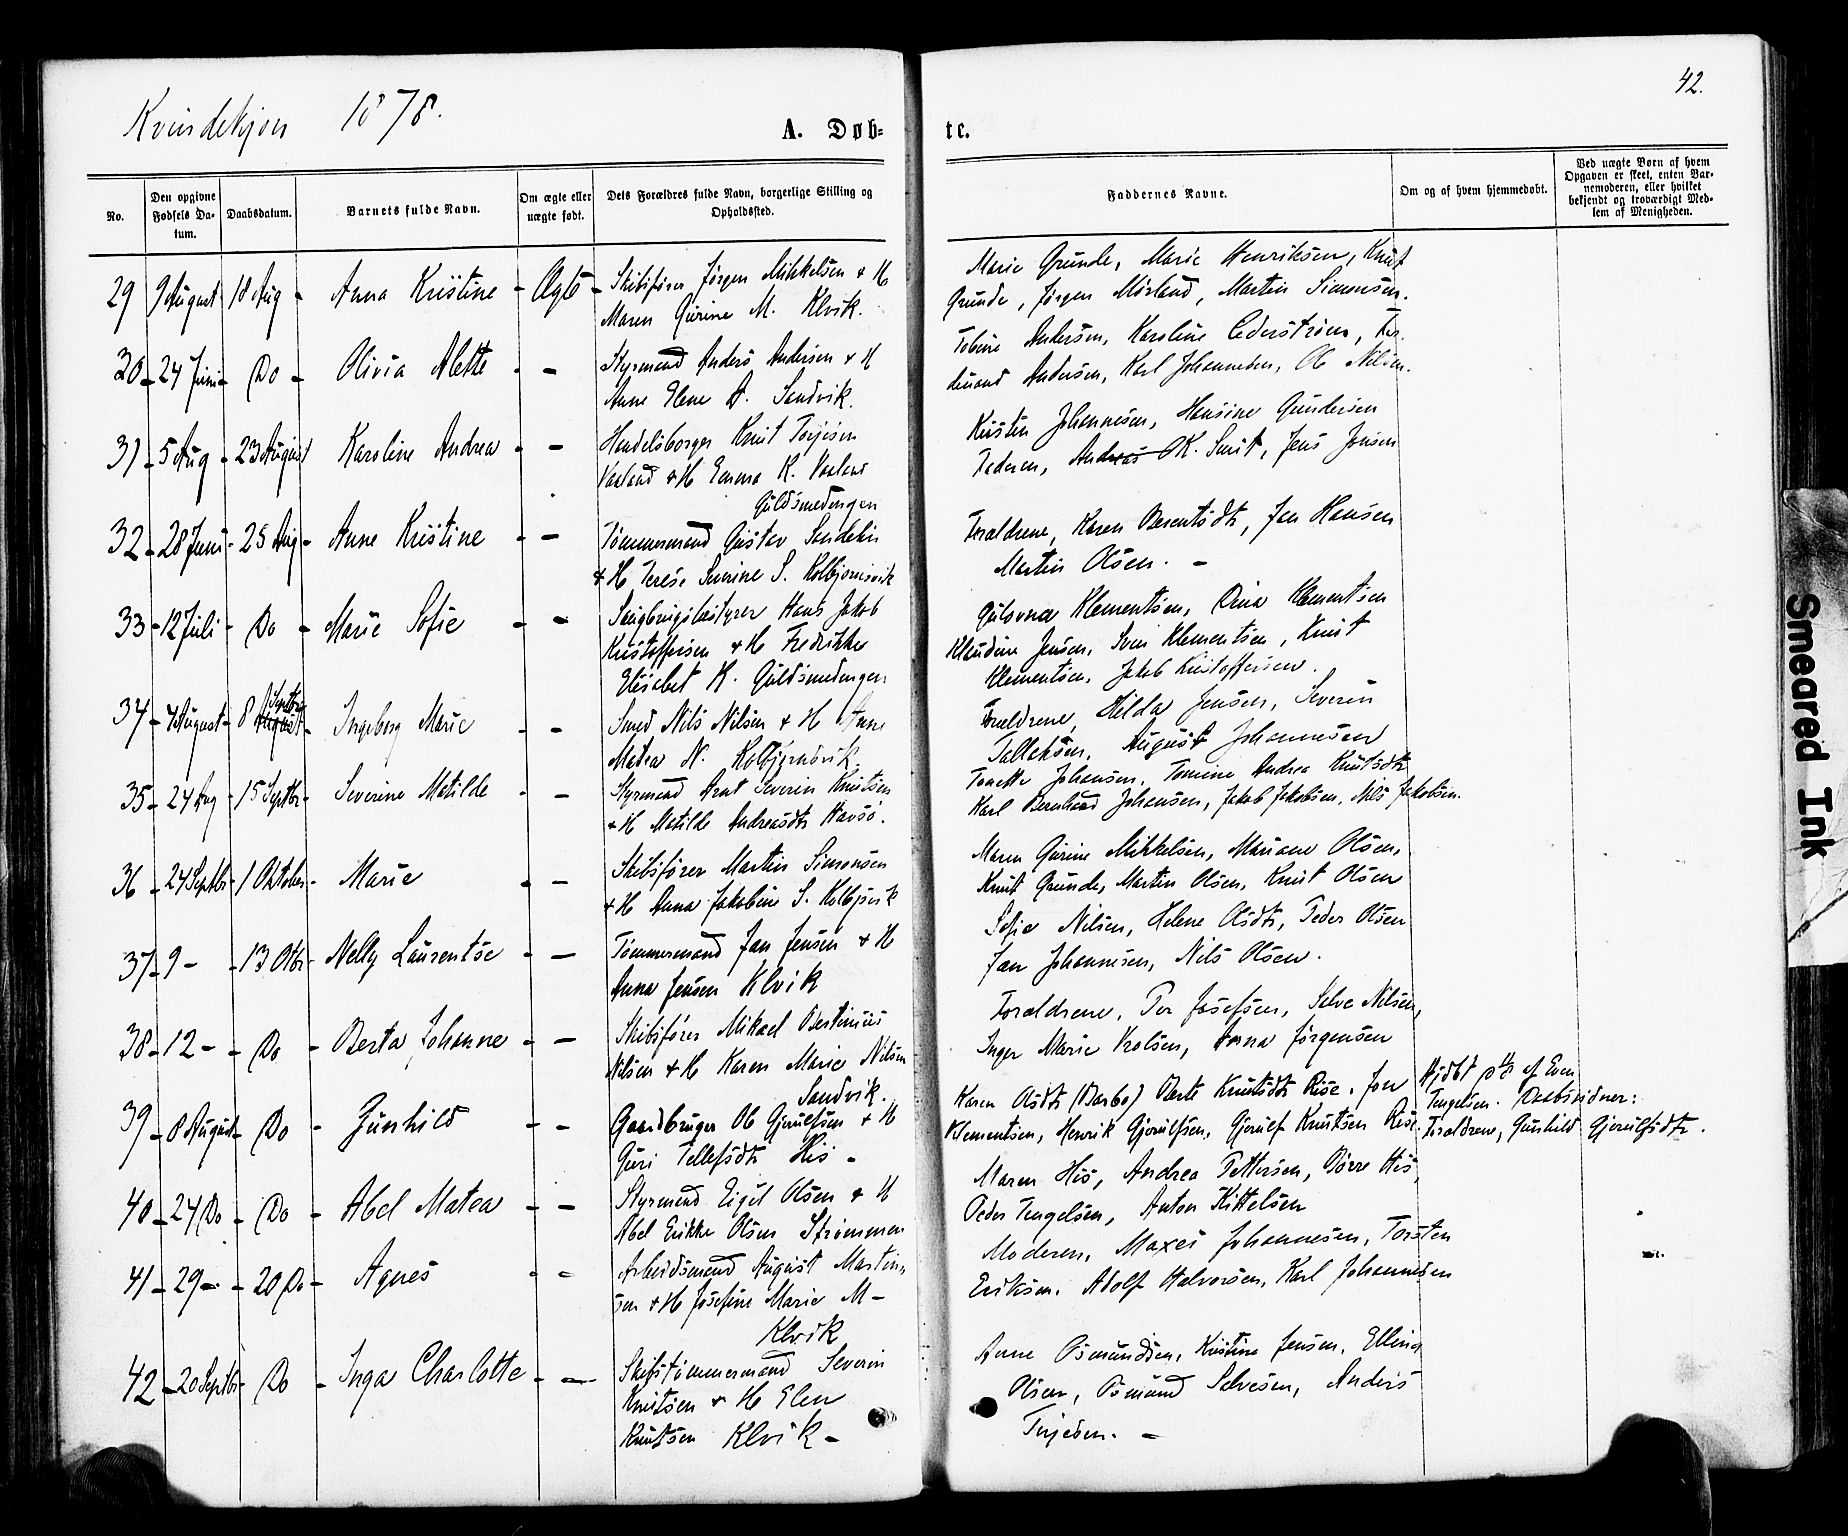 42.
Kvindekjøn 1878.
A. Døb-
te.
No.
Den opgivne Fødsels Da-
tum.
Daabsdatum.
Barnets fulde Navn.
Om ægte eller
uægte født.
Dets Forældres fulde Navn, borgerlige Stilling og
Opholdssted.
Faddernes Navne.
Om og af hvem hjemmedøbt.
Ved uægte Børn af hvem
Opgaven er skeet, enten Bar-
nemoderen, eller hvilket
bekjendt og troværdigt Med-
lem af Menigheden.
29 9 August 18 Aug - Anna Kristine - Ægte - Skibsfører Jørgen Mikkelsen + H
Maren Gurine M. Klvik.
Marie Grunde, Marie Henriksen, Knut
Grunde, Jørgen Mørland, Martin Simonsen.
30 - 24 Juni - Do - Olivia Alette - - Styrmand Anders Andersen + H
Anne Elene A. Sandvik.
Tobine Andersen, Karoline Cederstrøm, Fer-
dinand Andersen, Karl Johannesen, Ole Nilsen.
31 - 5 Aug - 23 August Karoline Andrea - - Handelsborger Knut Terjesen
Vaaland + H Emma K. Vaaland
Guldsmedengen
Kristen Johannesen, Hansine Gundersen
Pedersen, Andreas K. Smit, Jens Jensen
32 - 28 Juni - 25 Aug - Anne Kristine - - Tømmermand Gustav Sandelin
+ H Terese Severine S. Kolbjørnsvik
Foraldrene, Karen Berentsdtr, Jan Hansen
Martin Olsen. -
33 - 12 Juli - Do - Marie Sofie - - Saugbrugsbestyrer Hans Jakob
Kristoffersen + H Fredrikke
Elisabet K. Guldsmedengen
Gulovna Klementsen, Dina Klementsen
Klaudine Jensen, Sven Klementsen, Knut
Klementsen, Jakob Kristoffersen.
34 - 4 August - 8 August Septbr - Ingeborg Marie - - Smed Nils Nilsen + H Anne
Matea N. Kolbjørnsvik.
Foreldrene, Hilda Jensen, Severin
Tallaksen, August Johannesen
35 - 24 Aug - 15 Septbr - Severine Matilde - - Styrmand Arnt Severin Knutsen
+ H Matilde Andreasdtr Havsø.
Tonette Johansen, Tomine Andrea Knutsdtr
Karl Bernhard Johansen, Jakob Jakobsen, Nils Jakobsen.
36 - 24 Septbr - 1 Oktober - Marie - - Skibsfører Martin Simonsen
+ H Anna Jakobine S. Kolbjsvik
Maren Gurine Mikkelsen, Mariane Olsen,
Knut Grunde, Martin Olsen, Knut Olsen
37 - 9 - - 13 Otbr - Nelly Laurentse - - Tømmermand Jan Jensen + H
Anna Jensen Klvik
Sofie Nilsen, Helene Olsdtr, Peder Olsen
Jan Johannesen, Nils Olsen.
38 - 12 - - Do - Berta Johanne - - Skibsfører Mikael Bertinius
Nilsen + H Karen Marie Nilsen
Sandvik.
Foraldrene, Per Josefsen, Selve Nilsen,
Inger Marie Krolsen, Anna Jørgensen
39 - 8 August - Do - Gunhild - - Gaardbruger Ole Gjerulfsen + H
Guri Tellefsdtr His -
Karen Olsdtr (Barbo) Berte Knutsdtr Rise, Jon
Klementsen, Henrik Gjerulfsen, Gjerulf Knutsen Rise
Hjdbt af Even
Tengelsen. Daabsvidner:
Foraldrene, Gunhild Gjerulfsdtr.
40 - 24 Do - Do - Abel Matea - - Styrmand Eigil Olsen + H
Abel Erikke Olsen Strømmen
Maren His, Andrea Pettersen, Børre His,
Peder Tengelsen, Anton Kittelsen
41 - 29 - - 20 Do - Agnes - - Arbeidsmand August Martin-
sen + H Josefine Marie M -
Klvik
Moderen, Maxei Johannesen, Torsten
Eriksen, Adolf Halvorsen, Karl Johannesen
42 - 20 Septbr - Do - Inga Charlotte - - Skibstømmermand Severin
Knutsen + H Elen
Knutsen Klvik -
Anne Osmundsen, Kristine Jensen, Elling
Olsen, Osmund Selvesen, Anders
Terjesen. -
Smeared Ink